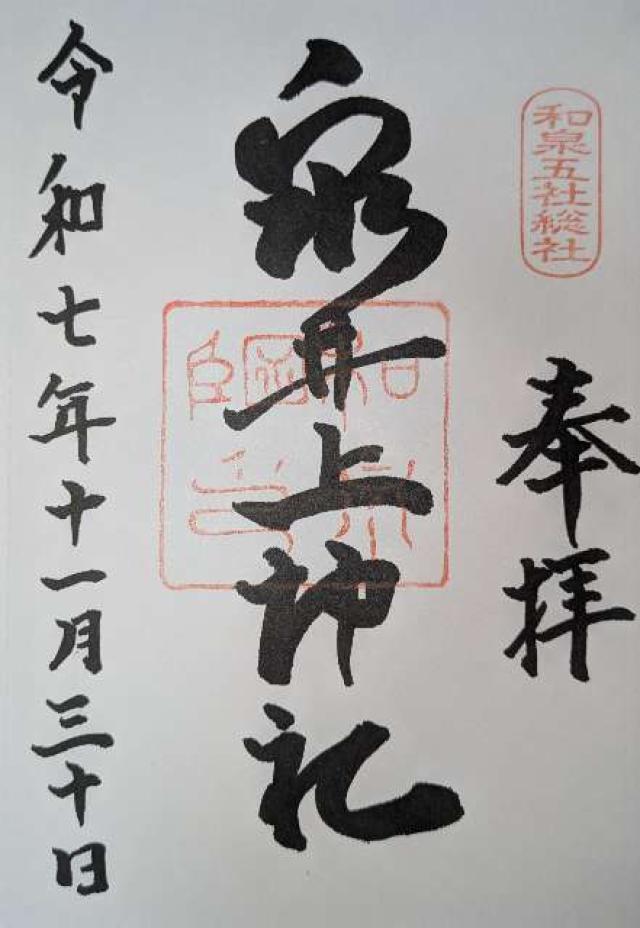 和泉五社総社
奉拝
泉井上神社
令和七年十一月三十日